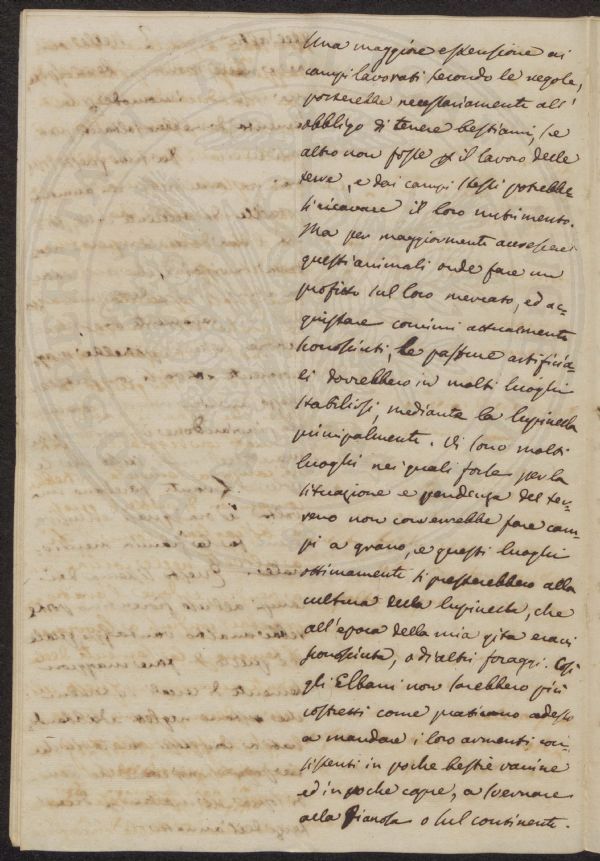 Una maggiore estensione di
campi lavorati secondo le regole,
porterebbe necessariamente all'
obbligo di tenere bestiami, se
altro non fosse p il lavoro delle
terre, e dai campi stessi potrebbe
si ricavare il loro nutrimento.
Ma per maggiormente accrescere
questi animali onde fare un
profitto sul loro mercato, ed ac-
quistare concimi attualmente
sconosciuti, le pasture artificia-
li dovrebbero in molti luoghi
stabilirsi, mediante la lupinella
principalmente. Vi sono molti
luoghi nei quali forse per la
situazione e pendenza del ter-
reno non converrebbe fare cam-
pi a grano, e questi luoghi
ottimamente si presterebbero alla
cultura della lupinella, che
all'epoca della mia gita eravi
sconosciuta, o di altri foraggi. Così
gli Elbani non sarebbero più
costretti come praticano adesso
a mandare i loro armenti con-
sistenti in poche bestie vaccine
ed in poche capre, a svernare
alla Pianosa o sul continente.